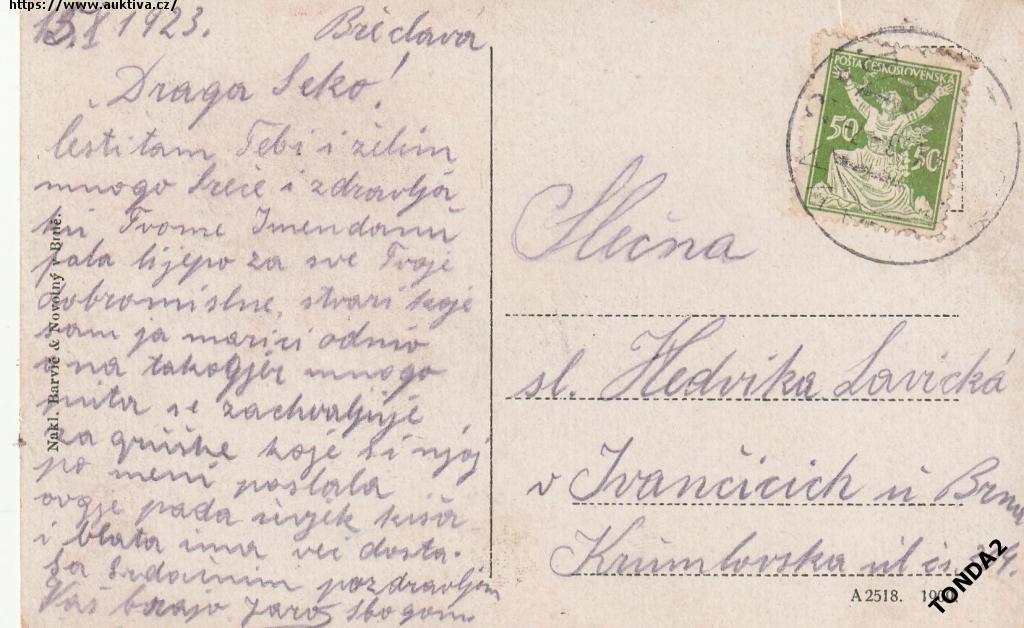 https://www.auktiva.cz/
15.X 1923. Břeclava
Draga Seko!
čestitam Tebi i želim
mnogo sreće i zdravlja
ku Tvome Imendanu
fala lijepo za sve Tvoje
dobromislne, stvari koje
sam ja marici odnio
ona takogjer mnogo
puta se zachvaljuje
za gruške koje si njoj
po meni poslala
ovgje pada uvjek kiša
i blata ima već dosta.
Sa srdačnim pozdravljem
Vaš brajo Jaroš sbogom.
Nakl. Barvič & Novotný v Brně.
POŠTA ČESKOSLOVENSKÁ
50 50
Slečna
sl. Hedvika Lavická
v Ivančicich u Brna
Krumlovska ul čís
A 2518.
TONDA2